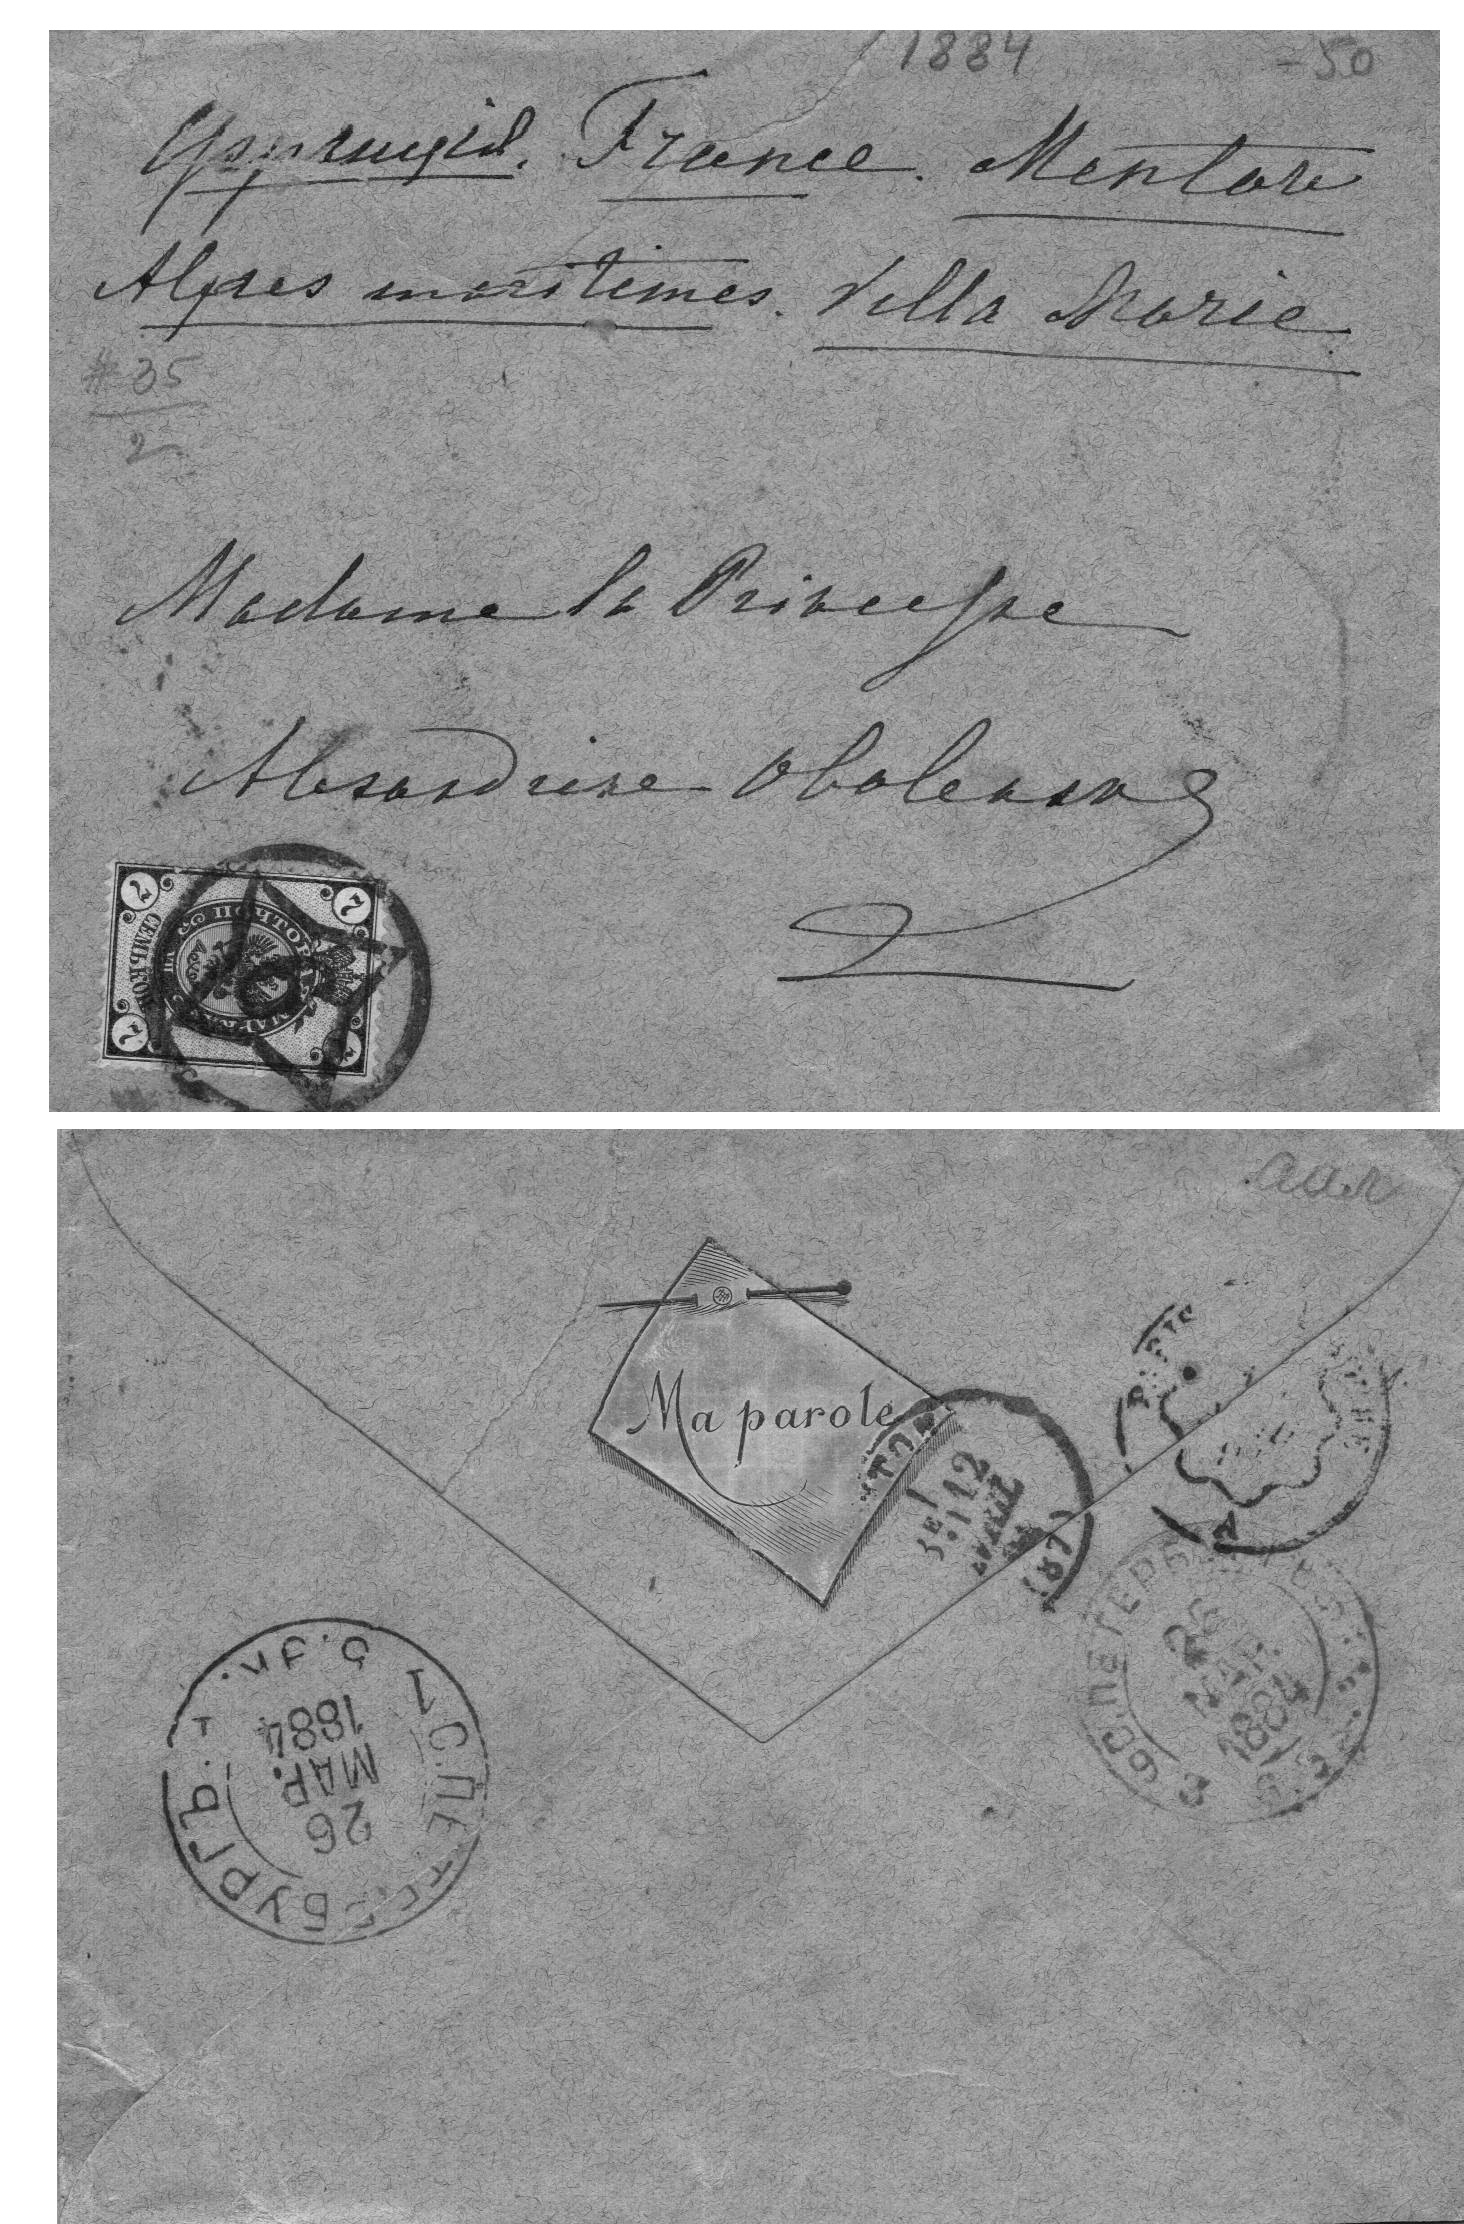 1884 -50
Франція. France. Menton
Alpes maritimes. Villa Marie
#35
2
Madame la Princesse
Alexandrine Obolensky
7
7
7
7
СЕМЬ КОП.
ПОЧТОВАЯ МАРКА
6
Ma parole
12
AVRIL
(87)
PARIS
26
МАР.
1884
С.ПЕТЕРБУРГЪ
1
26
МАР.
1884